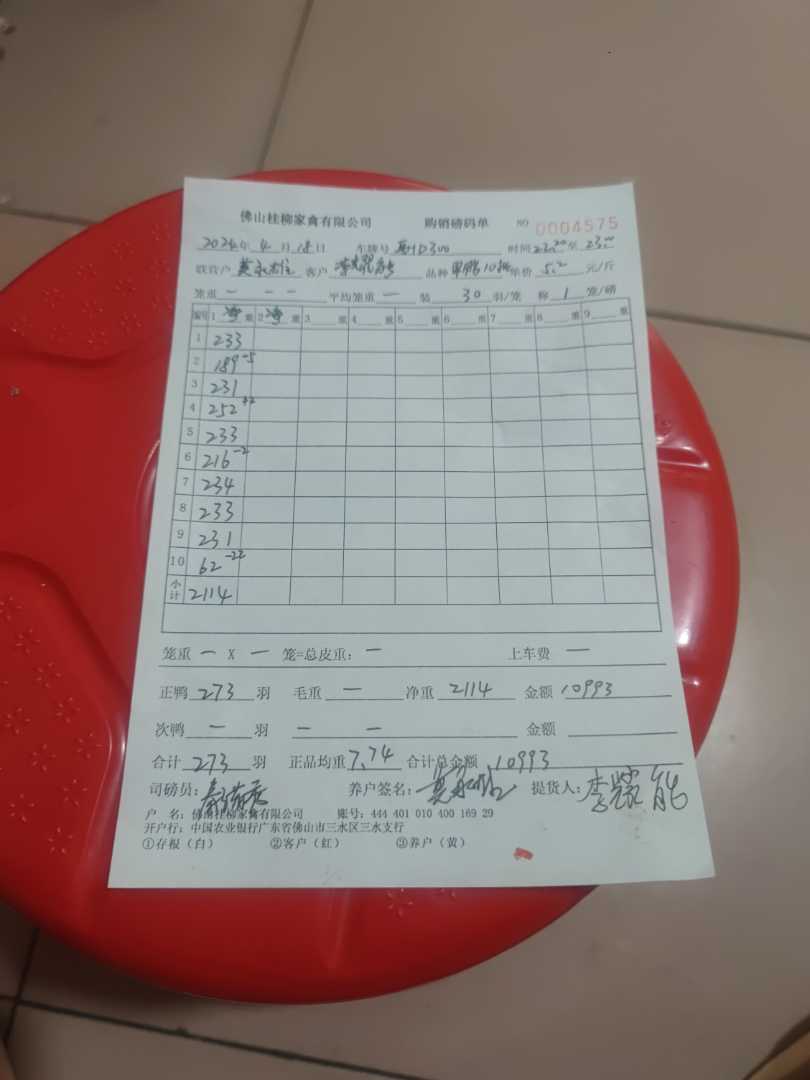 佛山桂柳家禽有限公司 购销磅码单 NO 0004575
2024年 4月 18日 车牌号 D3 时间 23 20 至 23
联营户 莫永雄 客户 李耀能 品种 10 单价 5.2 元/斤
笼重 — — — 平均笼重 — 装 30 羽/笼 称 1 笼/磅
编号 1 净 重 2 净 重 3 重 4 重 5 重 6 重 7 重 8 重 9 重
1 233
2 189 -5
3 231
4 252 +2
5 233
6 216 -2
7 234
8 233
9 231
10 62 -22
小计 2114
笼重 — X — 笼=总皮重: — 上车费 —
正鸭 273 羽 毛重 — 净重 2114 金额 10993
次鸭 — 羽 — — 金额
合计 273 羽 正品均重 7.74 合计总金额 10993
司磅员: 养户签名: 莫永雄 提货人: 李耀能
户 名: 佛山桂柳家禽有限公司 账号: 444 401 010 400 169 29
开户行: 中国农业银行广东省佛山市三水区三水支行
①存根(白) ②客户(红) ③养户(黄)